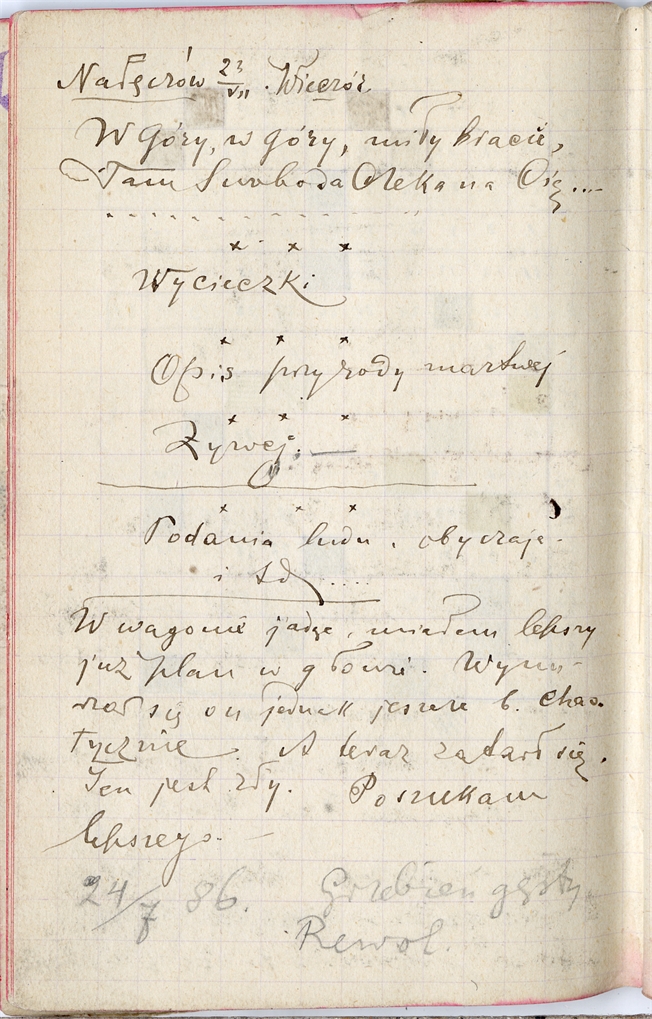 Nałęczów 23/VII. Wieczór
W góry, w góry, miły bracie,
Tam Swoboda czeka na Cię....
x x x
Wycieczki
x x x
Opis przyrody martwej
x x x
Żywej. —
x x x
Podania ludu, obyczaje
i td.....
W wagonie jadąc, miałem lepszy
już plan w głowie. Wynu-
rzał się on jednak jeszcze b. chao-
tycznie. A teraz zatarł się.
Ten jest zły. Poszukam
lepszego. —
24/7 86. Grzebień gęsty
Rewol.